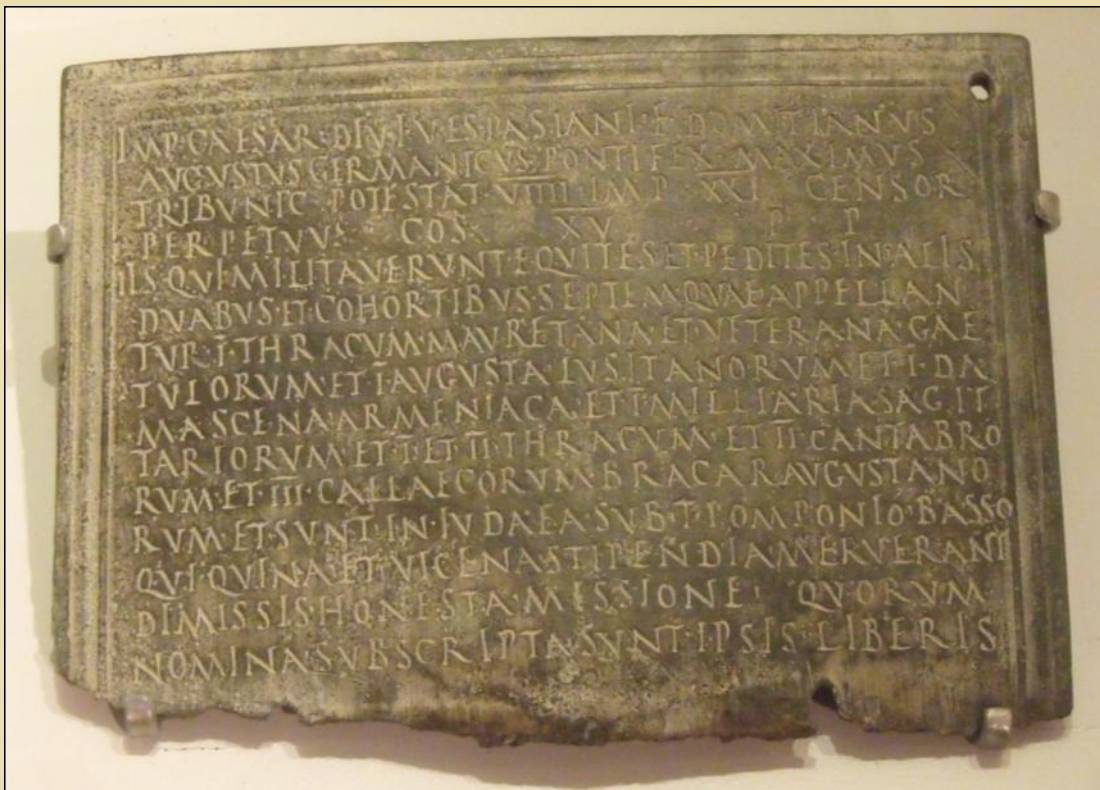 IMP·CAESAR·DIVI·VESPASIANI·F·DOMITIANVS
AVGVSTVS GERMANICVS·PONTIFEX·MAXIMVS
TRIBVNIC·POTESTAT·VIIII·IMP·XXI CENSOR
PERPETVVS COS XV P P
IIS·QVI MILITAVERVNT EQVITES ET PEDITES·IN·ALIS
DVABVS·ET·COHORTIBVS·SEPTEM QVAE APPELLAN
TVR·I·THRACVM·MAVRETANA·ET·VETERANA·GAE
TVLORVM·ET·I·AVGVSTA·LVSITANORVM·ET·I·DA
MASCENA·ARMENIACA·ET·I·MILLIARIA·SAGIT
TARIORVM·ET·I·ET·II·THRACVM·ET·II·CANTABRO
RVM·ET·III·CALLAECORVM·BRACARAVGVSTANO
RVM·ET·SVNT·IN·IVDAEA·SVB·T·POMPONIO·BASSO
QVI·QVINA·ET·VICENA·STIPENDIA MERVERANT
DIMISSIS·HONESTA·MISSIONE· QVORVM
NOMINA·SVBSCRIPTA·SVNT·IPSIS·LIBERIS